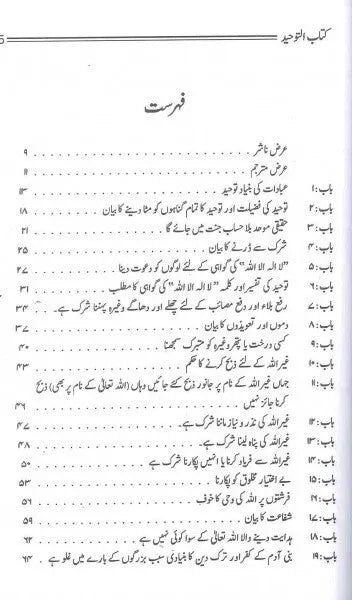 کتاب التوحید 5
فہرست
عرض ناشر ۹
عرض مترجم ۱۱
باب:۱ عبادات کی بنیاد توحید ۱۳
باب:۲ توحید کی فضیلت اور توحید کا تمام گناہوں کو مٹا دینے کا بیان ۱۸
باب:۳ حقیقی موحد بلا حساب جنت میں جائے گا ۲۱
باب:۴ شرک سے ڈرنے کا بیان ۲۵
باب:۵ "لا الہ الا اللہ" کی گواہی کے لئے لوگوں کو دعوت دینا ۲۷
باب:۶ توحید کی تفسیر اور کلمہ "لا الہ الا اللہ" کی گواہی کا مطلب ۳۱
باب:۷ رفع بلاء اور دفع مصائب کے لئے چھلے اور دھاگے وغیرہ پہننا شرک ہے۔ ۳۴
باب:۸ دموں اور تعویذوں کا بیان ۳۷
باب:۹ کسی درخت یا پتھر وغیرہ کو متبرک سمجھنا ۴۰
باب:۱۰ غیر اللہ کے لئے ذبح کرنے کا حکم ۴۳
باب:۱۱ جہاں غیر اللہ کے نام پر جانور ذبح کئے جائیں وہاں (اللہ تعالیٰ کے نام پر بھی) ذبح
کرنا جائز نہیں ۴۶
باب:۱۲ غیر اللہ کی نذر و نیاز ماننا شرک ہے۔ ۴۷
باب:۱۳ غیر اللہ کی پناہ لینا شرک ہے۔ ۴۸
باب:۱۴ غیر اللہ سے فریاد کرنا یا انہیں پکارنا شرک ہے ۵۰
باب:۱۵ بے اختیار مخلوق کو پکارنا ۵۳
باب:۱۶ فرشتوں پر اللہ کی وحی کا خوف ۵۶
باب:۱۷ شفاعت کا بیان ۵۹
باب:۱۸ ہدایت دینے والا اللہ تعالیٰ کے سوا کوئی نہیں ۶۲
باب:۱۹ بنی آدم کے کفر اور ترک دین کا بنیادی سبب بزرگوں کے بارے میں غلو ہے ۶۴